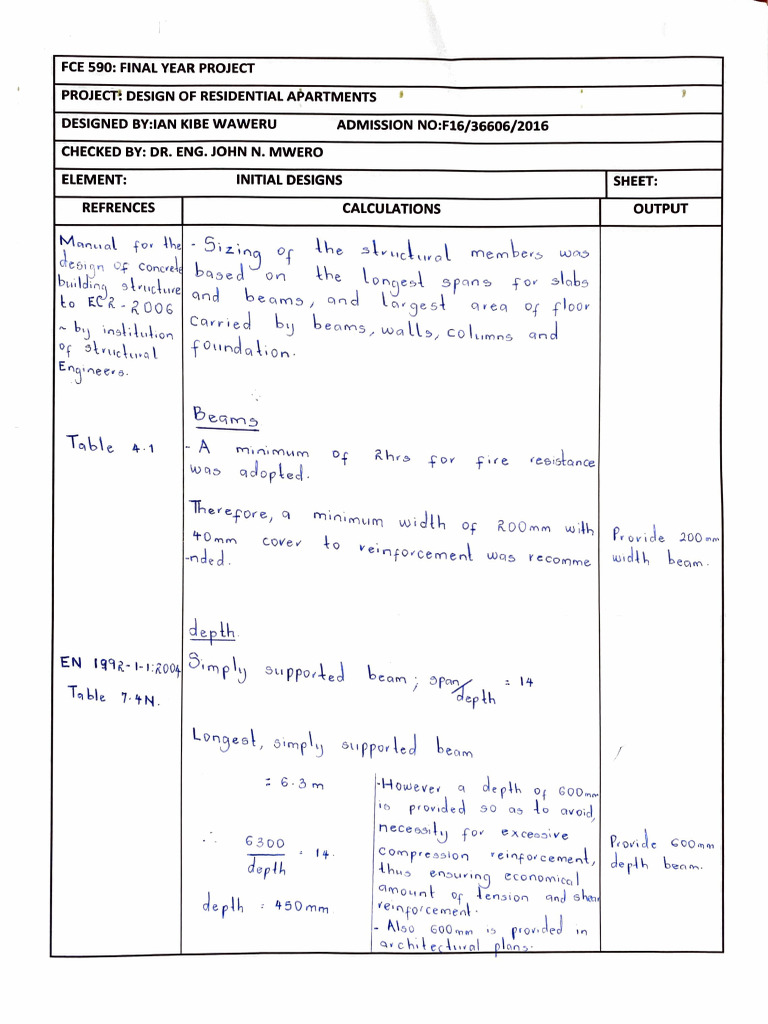 FCE 590: FINAL YEAR PROJECT
PROJECT: DESIGN OF RESIDENTIAL APARTMENTS
DESIGNED BY:IAN KIBE WAWERU ADMISSION NO:F16/36606/2016
CHECKED BY: DR. ENG. JOHN N. MWERO
ELEMENT: INITIAL DESIGNS SHEET:
REFRENCES CALCULATIONS OUTPUT
Manual for the
design of concrete
building structure
to EC2-2006
~ by institution
of structural
Engineers.
- Sizing of the structural members was
based on the longest spans for slabs
and beams, and largest area of floor
carried by beams, walls, columns and
foundation.
Beams
Table 4.1
- A minimum of 2hrs for fire resistance
was adopted.
Therefore, a minimum width of 200mm with
40mm cover to reinforcement was recomme
-nded.
Provide 200mm
width beam.
depth.
EN 1992-1-1:2004
Table 7.4N.
Simply supported beam; span/depth = 14
Longest, simply supported beam
= 6.3 m
∴ 6300/depth = 14.
depth = 450mm.
-However a depth of 600mm
is provided so as to avoid,
necessity for excessive
compression reinforcement,
thus ensuring economical
amount of tension and shear
reinforcement.
- Also 600mm is provided in
architectural plans.
Provide 600mm
depth beam.